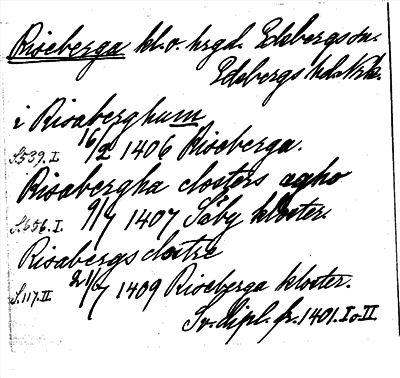 Riseberga kl. o. hrgd. Edsbergs sn.
Edsbergs hd. Nrk.
i Risaberghum
S. 539. I 16/2 1406 Riseberga.
Risabergha closters agho
S. 656. I. 9/7 1407 Säby kloster.
Risabergs clostre
S. 117. II 21/7 1409 Riseberga kloster.
Sv. dipl. fr. 1401. I o. II